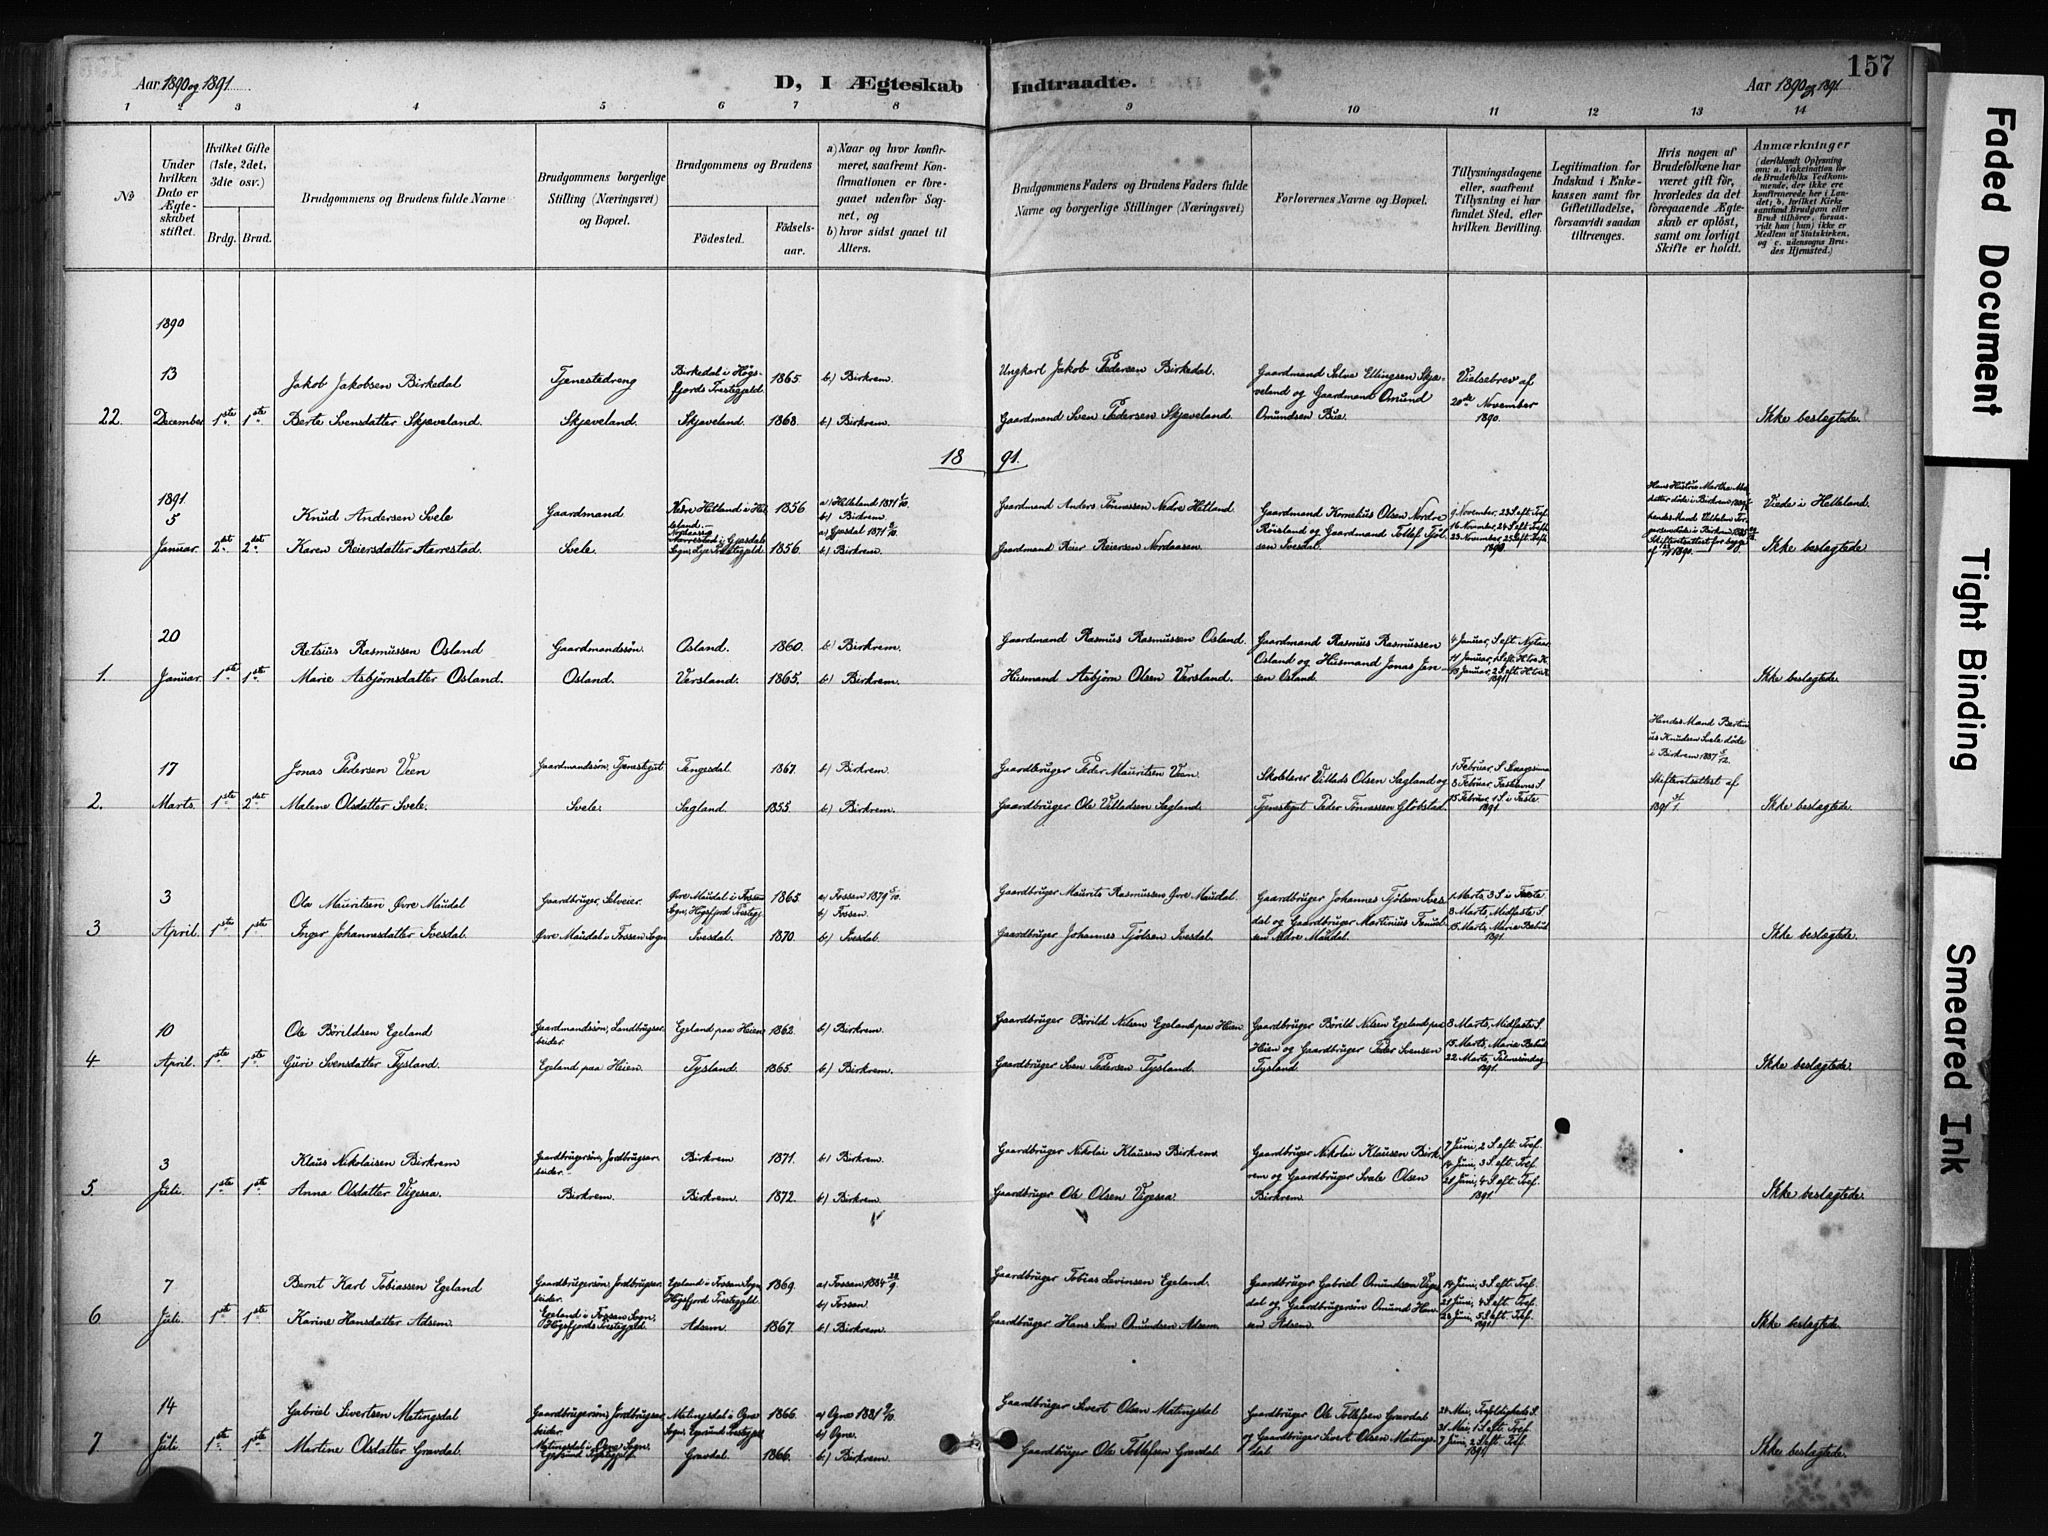 Aar 1890 og 1891.
D, I Ægteskab Indtraadte.
Aar 1890 og 1891.
157
1 2 3 4 5 6 7 8 9 10 11 12 13 14
№
Under hvilken Dato er Ægteskabet stiftet.
Hvilket Gifte (1ste, 2det, 3die osv.)
Brdg. Brud.
Brudgommens og Brudens fulde Navne
Brudgommens borgerlige Stilling (Næringsvei) og Bopæl.
Brudgommens og Brudens
Födested.
Födsels-aar.
a) Naar og hvor konfirmeret, saafremt Konfirmationen er foregaaet udenfor Sognet, og
b) hvor sidst gaaet til Alters.
Brudgommens Faders og Brudens Faders fulde Navne og borgerlige Stillinger (Næringsvei)
Forlovernes Navne og Bopæl.
Tillysningsdagene eller, saafremt Tillysning ei har fundet Sted, efter hvilken Bevilling.
Legitimation for Indskud i Enkekassen samt for Giftetilladelse, forsaavidt saadan tiltrænges.
Hvis nogen af Brudefolkene har været gift för, hvorledes da det foregaaende Ægteskab er oplöst, samt om lovligt Skifte er holdt.
Anmærkninger
(deriblandt Oplysning om: a. Vakcination for de Brudefolks Vedkommende, der ikke ere konfirmerede her i Landet; b. hvilket Kirkesamfund Brudgom eller Brud tilhörer, forsaavidt han (hun) ikke er Medlem af Statskirken, og c. udensogns Brudes Hjemsted.)
1890
13 Jakob Jakobsen Birkedal Tjenestedreng Birkedal i Høgsfjords Prestegjeld 1865. b.) Birkrem. Ungkarl Jakob Pedersen Birkedal. Gaardmand Salve Ellingsen Skjæveland og Gaardmand Omund Omundsen Bue. Vielsebrev af 20de November 1890.
22. December 1ste 1ste Berte Svensdatter Skjæveland. Skjæveland. Skjæveland. 1868. b.) Birkrem. Gaardmand Sven Pedersen Skjæveland. Ikke beslægtede.
1891.
1891.
5 Knud Andersen Svele Gaardmand Nedre Hetland i Helleland. 1856 a) Helleland 1871 b.) Birkrem. Gaardmand Anders Tønnessen Nedre Hetland. Gaardmand Kornelius Olsen Nordre Røisland og Gaardmand Tollef Tjølsen Ivesdal. 9 November, 23 S. eft. Tref. 16 November, 24 S. eft. Tref. 23 November, 25 S. eft. Tref. 1890 Viede i Helleland.
Januar. 2det 2det Karen Reiersdatter Aarrestad. Svele. 1856. a) Gjesdal 1871 b.) Birkrem. Gaardmand Reier Reiersen Nordaasen. Ikke beslægtede
20 Retsius Rasmussen Osland Gaardmandssøn. Osland. 1860. b.) Birkrem. Gaardmand Rasmus Rasmussen Osland. Gaardmand Rasmus Rasmussen Osland og Husmand Jonas Jensen Osland. 4 Januar, S. eft. Nytaar. 11 Januar, 1 S. eft. H. tre K. 18 Januar, 2 S. eft. H. tre K. 1891
1. Januar. 1ste 1ste Marie Asbjørnsdatter Osland. Osland. Versland. 1865. b.) Birkrem. Husmand Asbjørn Olsen Versland. Ikke beslægtede.
17 Jonas Pedersen Veen Gaardmandssøn, Tjenestegut Tengesdal. 1867. b.) Birkrem. Gaardbruger Peder Mauritsen Veen. Skolelærer Villads Olsen Sagland og Tjenestegut Peder Tønnessen Gløkstad. 1 Februar, S. Septuagesima 8 Februar, Fastelavns S. 15 Februar, 1 S. i Faste. 1891. Hendes Mand Bertinius Knudsen Svele døde i Birkrem 1887 5/12. Skifteattest af 1891 31/1.
2. Marts. 1ste 2det Malene Olsdatter Svele. Svele. Sagland. 1855. b.) Birkrem. Gaardbruger Ole Villadsen Sagland. Ikke beslægtede.
3 Ole Mauritsen Øvre Maudal Gaardbruger, Selveier. Øvre Maudal i Fossan Sogn, Høgsfjord Prestegj. 1865. a) Fossan 1879 5/10. b.) Fossan. Gaardbruger Maurits Rasmussen Øvre Maudal. Gaardbruger Johannes Tjølsen Ivesdal og Gaardbruger Martinius Enoksen Midre Maudal. 1 Marts, 3 S. i Faste 8 Marts, Midfaste S. 15 Marts, Mariæ Bebud. 1891.
3 April. 1ste 1ste Inger Johannesdatter Ivesdal. Øvre Maudal i Fossan Sogn Ivesdal. 1870. b.) Ivesdal. Gaardbruger Johannes Tjølsen Ivesdal. Ikke beslægtede.
10 Ole Børildsen Egeland Gaardmandssøn, Landbrugsarbeider. Egeland paa Heien 1862. b.) Birkrem. Gaardbruger Børild Nilsen Egeland paa Heien Gaardbruger Børild Nilsen Egeland paa Heien og Gaardbruger Peder Svensen Tysland. 8 Marts, Midfaste S. 15 Marts, Mariæ Bebud. 22 Marts, Palmesøndag 1891.
4 April. 1ste 1ste Guri Svensdatter Tysland. Egeland paa Heien. Tysland. 1865. b.) Birkrem. Gaardbruger Sven Pedersen Tysland. Ikke beslægtede.
3 Klaus Nikolaisen Birkrem Gaardbrugersøn, Jordbrugsarbeider. Birkrem 1871. b.) Birkrem. Gaardbruger Nikolai Klausen Birkrem. Gaardbruger Nikolai Klausen Birkrem og Gaardbruger Svale Olsen Birkrem. 7 Juni, 2 S. eft. Tref. 14 Juni, 3 S. eft. Tref. 21 Juni, 4 S. eft. Tref. 1891
5. Juli. 1ste 1ste Anna Olsdatter Vigesaa. Birkrem. Birkrem. 1872. b.) Birkrem. Gaardbruger Ole Olsen Vigesaa. Ikke beslægtede.
7 Bernt Karl Tobiassen Egeland Gaardbrugersøn, Jordbrugsarbeider. Egeland i Fossan Sogn, Høgsfjord Prestegjeld. 1869. a) Fossan 1884 28/9 b.) Fossan. Gaardbruger Tobias Levinsen Egeland. Gaardbruger Gabriel Omundsen Vigesdal og Gaardbrugersøn Omund Hansen Adsem. 14 Juni, 3 S. eft. Tref. 21 Juni, 4 S. eft. Tref. 28 Juni, 5 S. eft. Tref. 1891
6 Juli. 1ste 1ste Karine Hansdatter Adsem. Egeland i Fossan Sogn, Høgsfjords Prestegjeld. Adsem. 1867. b.) Birkrem. Gaardbruger Hans Sim. Omundsen Adsem. Ikke beslægtede.
14 Gabriel Sivertsen Matingsdal Gaardbrugersøn, Jordbrugsarbeider. Matingsdal i Ogne Sogn, Egersund Prestegjeld 1866. a) Ogne 1881 9/10. b.) Ogne. Gaardbruger Sivert Olsen Matingsdal Gaardbruger Ole Tollefsen Gravdal og Gaardbruger Sivert Olsen Matingsdal 24 Mai, Trefoldigheds S. 31 Mai, 1 S. eft. Tref. 7 Juni, 2 S. eft. Tref. 1891
7 Juli. 1ste 1ste Martine Olsdatter Gravdal. Matingsdal i Ogne Sogn, Egersund Prestegjeld. Gravdal. 1866. b.) Birkrem. Gaardbruger Ole Tollefsen Gravdal Ikke beslægtede.
Faded Document
Tight Binding
Smeared Ink